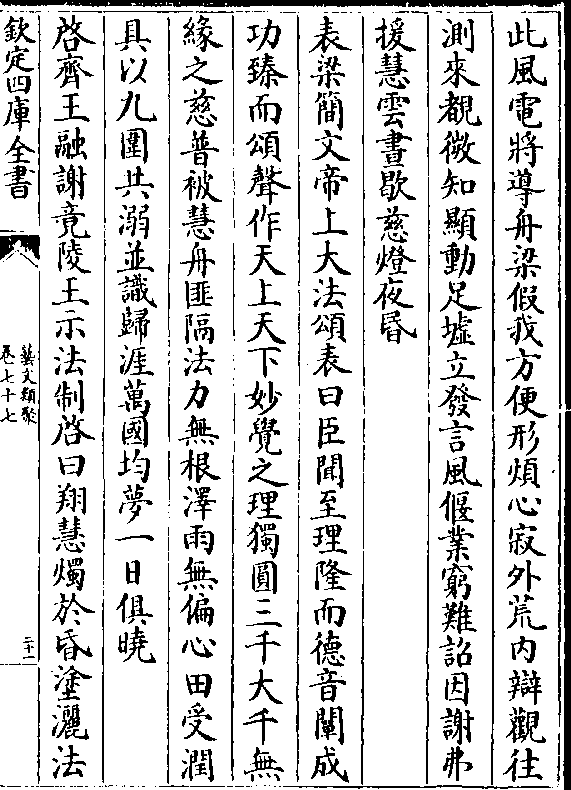 此風電將導舟梁假我方便形煩心寂外荒内辯觀往
測來覩微知顯動足墟立發言風偃業窮難詔因謝弗
援慧雲晝歇慈燈夜昏
表梁簡文帝上大法頌表曰臣聞至理隆而德音闡成
功臻而頌聲作天上天下妙覺之理獨圓三千大千無
緣之慈普被慧舟匪隔法力無根澤雨無偏心田受潤
具以九圍共溺並識歸涯萬國均夢一日俱曉
啓齊王融謝竟陵王示法制啓曰翔慧燭於昏塗灑法
欽定四庫全書
藝文類聚
卷七十七
二十一